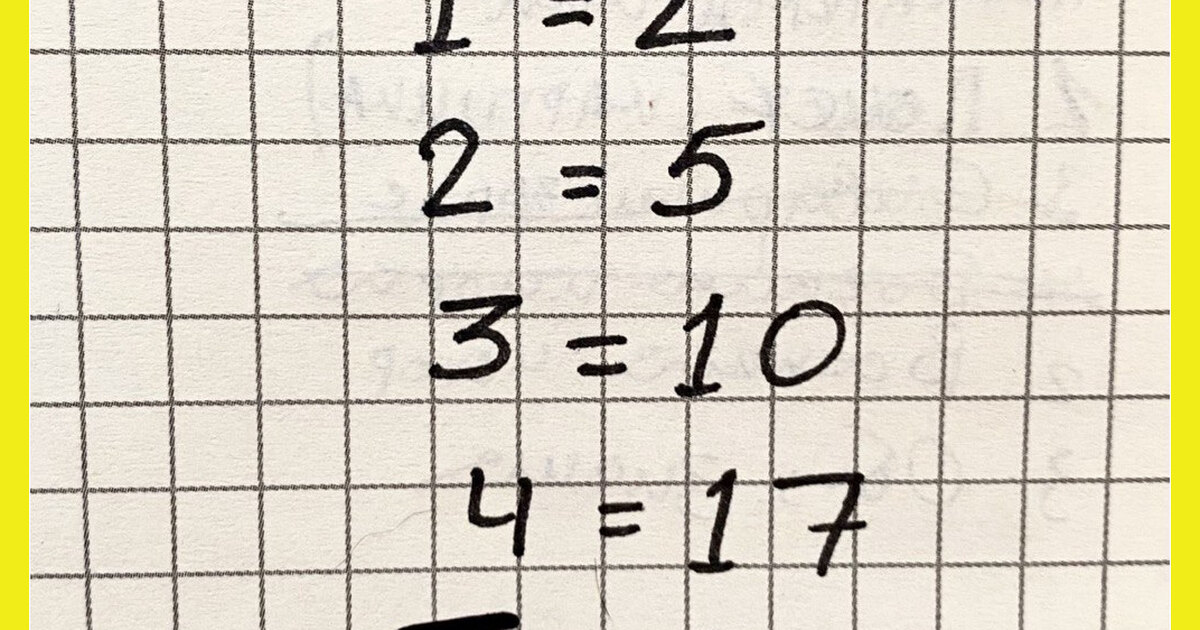 1 = 2
2 = 5
3 = 10
4 = 17